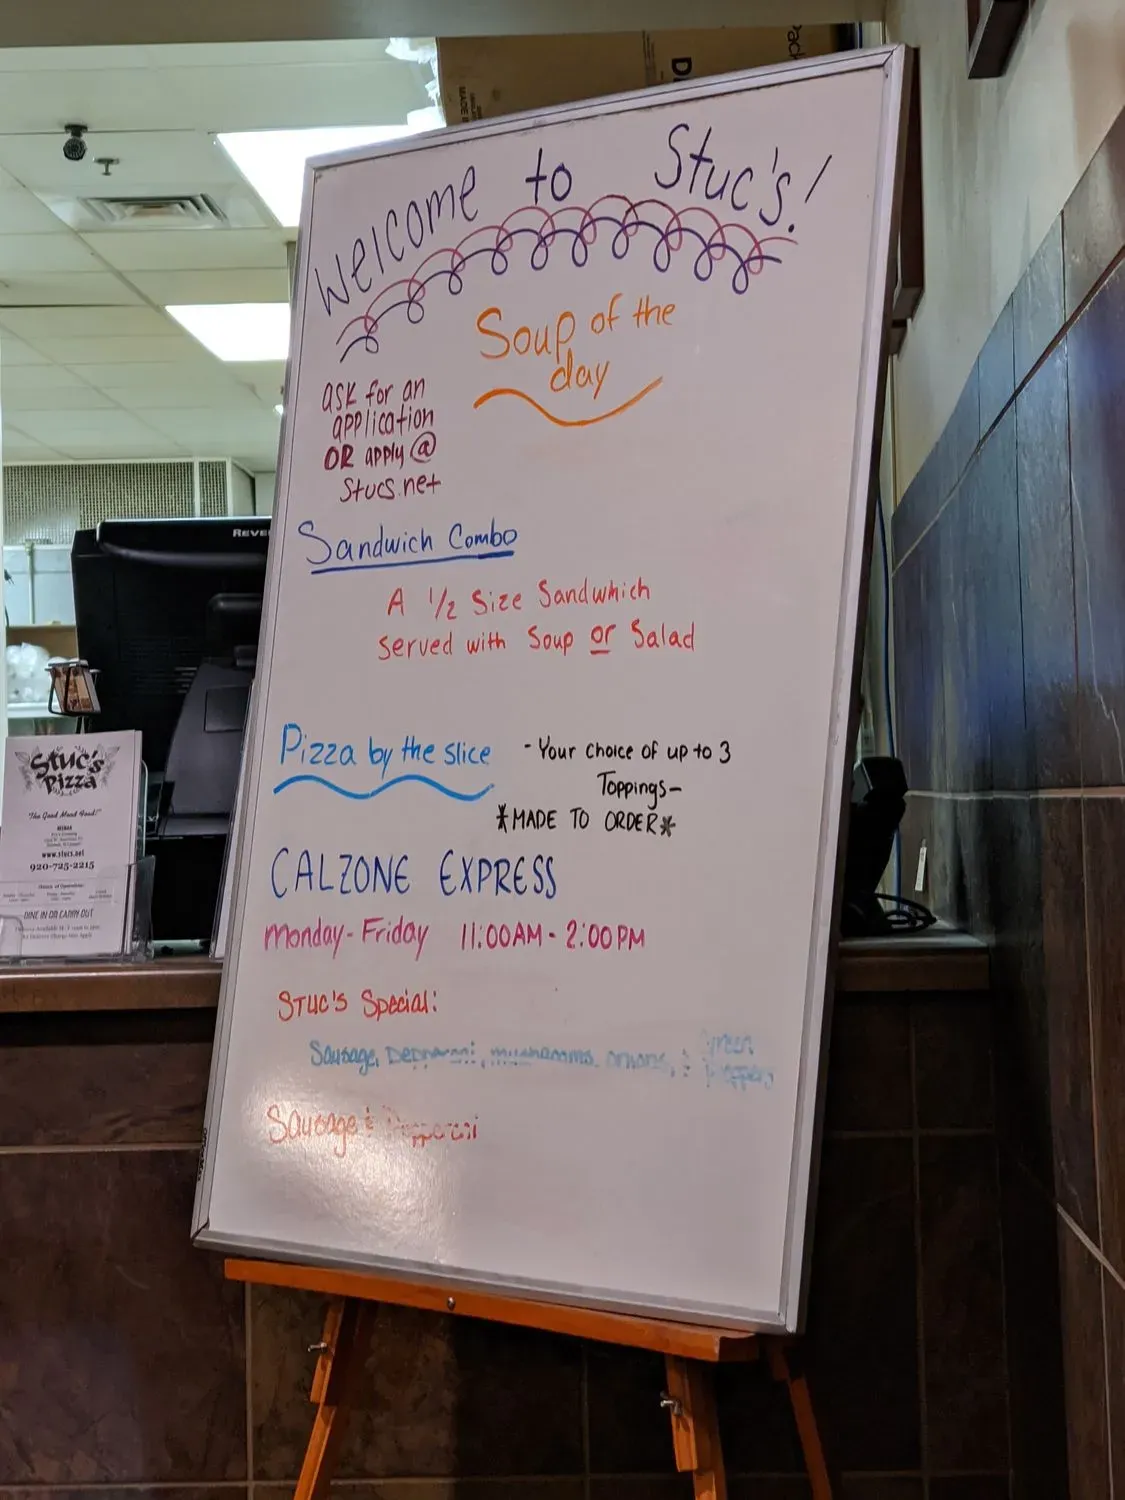 Welcome to Stuc's!
Soup of the
day
ask for an
application
OR apply @
Stucs.net
Sandwich Combo
A 1/2 Size Sandwhich
served with Soup or Salad
Pizza by the slice
- Your choice of up to 3
Toppings-
*MADE TO ORDER*
CALZONE EXPRESS
Monday-Friday 11:00AM - 2:00PM
STUC'S Special:
Sausage, Pepperoni, mushrooms, onions, & Green
Peppers
Sausage & Pepperoni
REVE
MADE
Stuc's
Pizza
"The Good Mood Food!"
NEENAH
www.stucs.net
920-725-2215
Hours of Operation:
DINE IN OR CARRY OUT